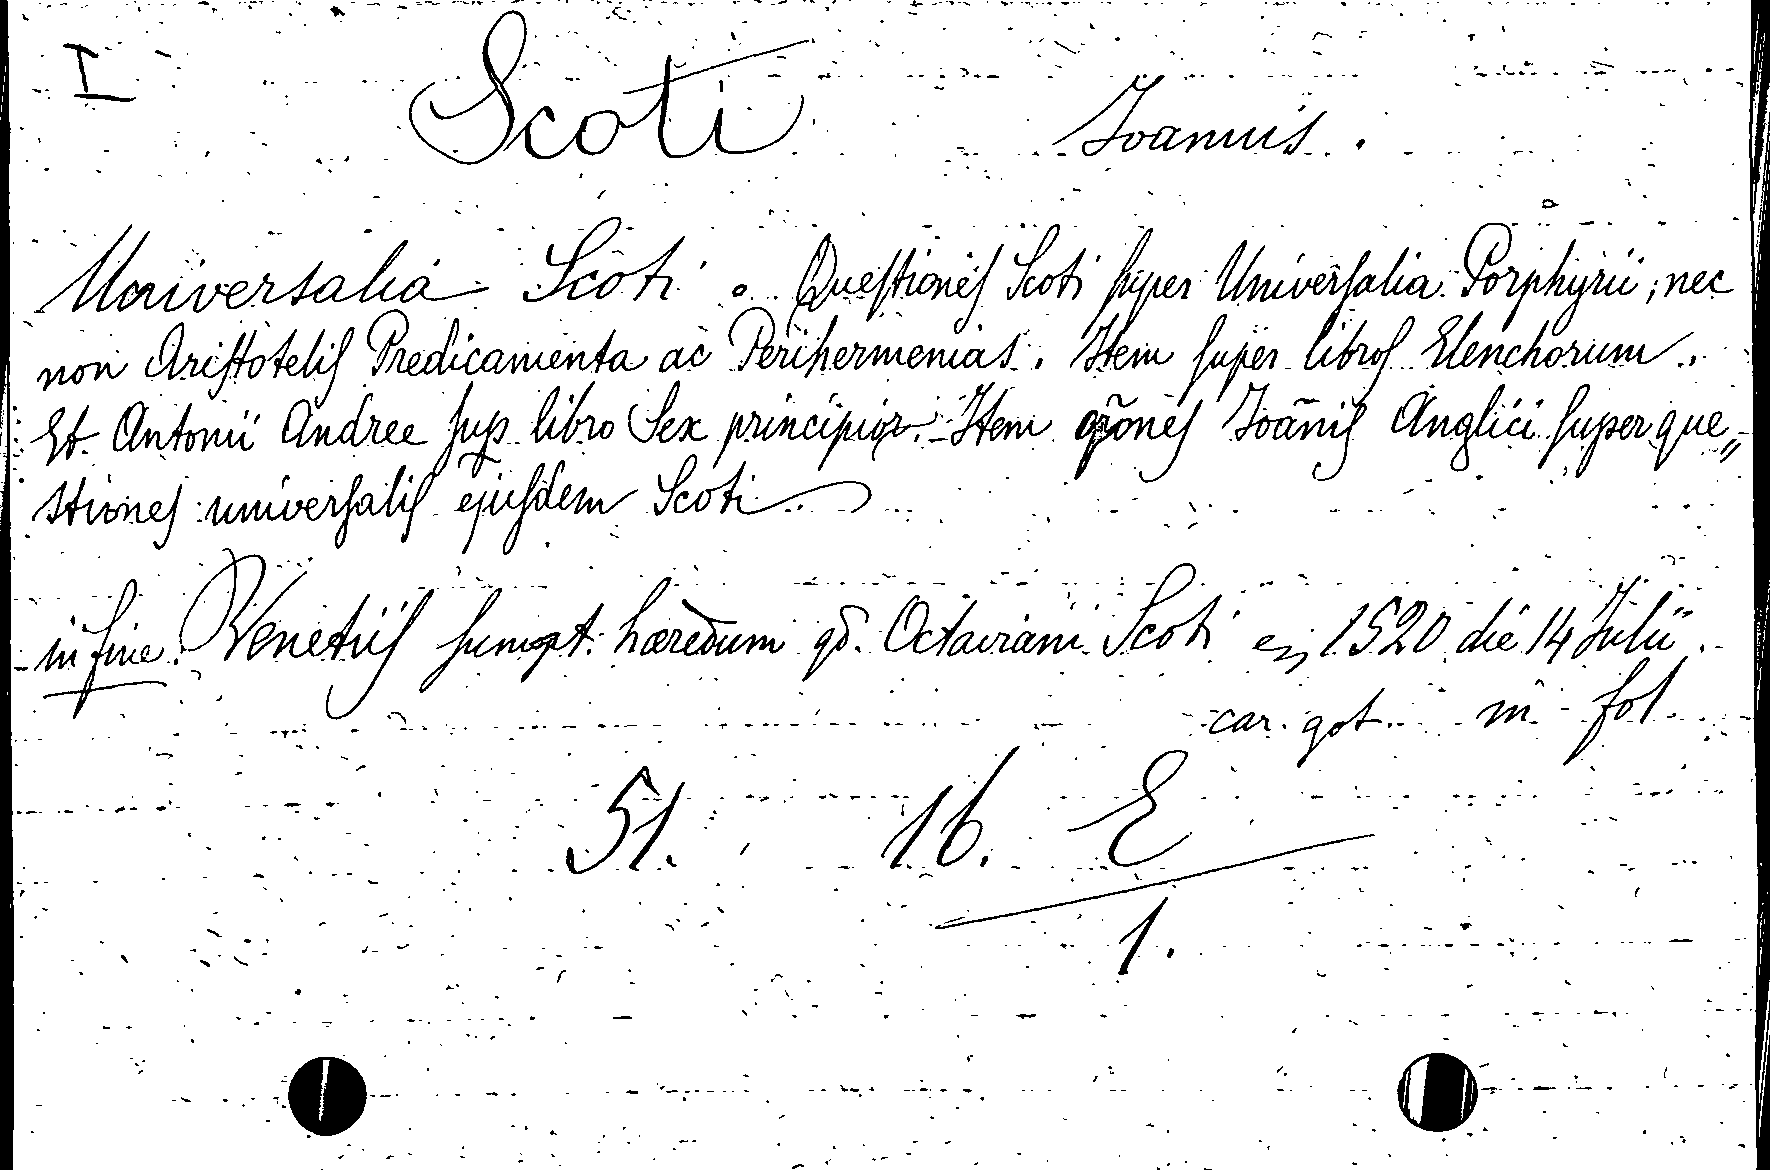 I
Scoti Ioannis.
Universalia Scoti. Queſtioneſ Scoti ſuper Univerſalia Porphyrii, nec
non Ariſtoteliſ Predicamenta ac Perihermenias. Item ſuper libroſ Elenchorum.
Et Antonii Andree ſup libro Sex principioꝝ. Item q̃oneſ Ioãniſ Anglici ſuper que„
stioneſ univerſaliſ ejuſdem Scoti
in fine. Venetiiſ ſumpt. hæredum qd. Octaviani Scoti 1520 die 14 Julii.
car. got. in fol.
51. 16. E
1.